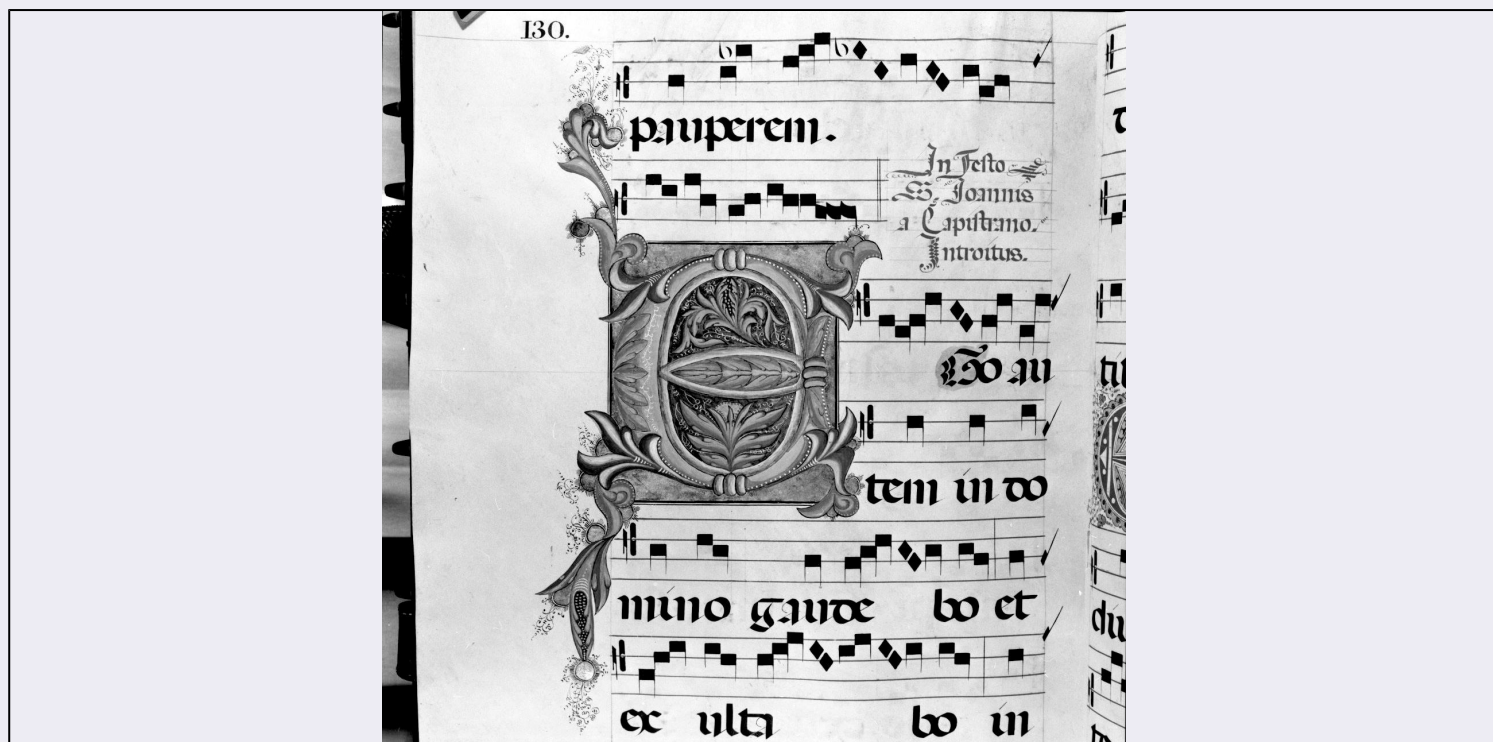 130.
pauperem.
In Festo
S. Joannis
a Capistrano.
Introitus.
EGo au
tem in do
mino gaude bo et
ex ulta bo in